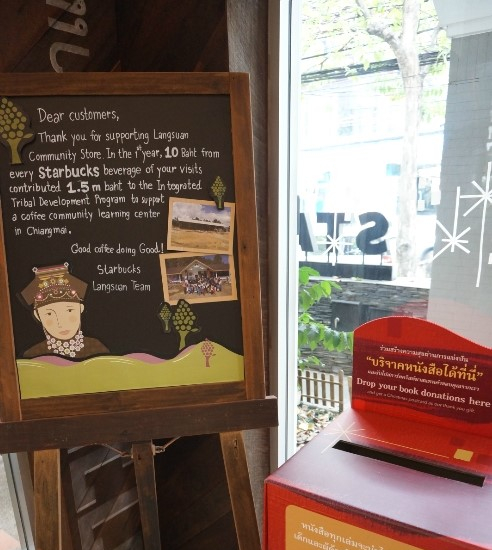 Dear customers,
Thank you for supporting Langsuan
Community Store. In the 1st year, 10 Baht from
every Starbucks beverage of your visits
contributed 1.5 m baht to the Integrated
Tribal Development Program to support
a coffee community learning center
in Chiangmai.
Good coffee doing Good!
Starbucks
Langsuan Team
STA
ร่วมสร้างความสุขผ่านการแบ่งปัน
"บริจาคหนังสือได้ที่นี่"
Drop your book donations here
and get a Christmas postcard as our thank you gift
หนังสือทุกเล่มจะนำ